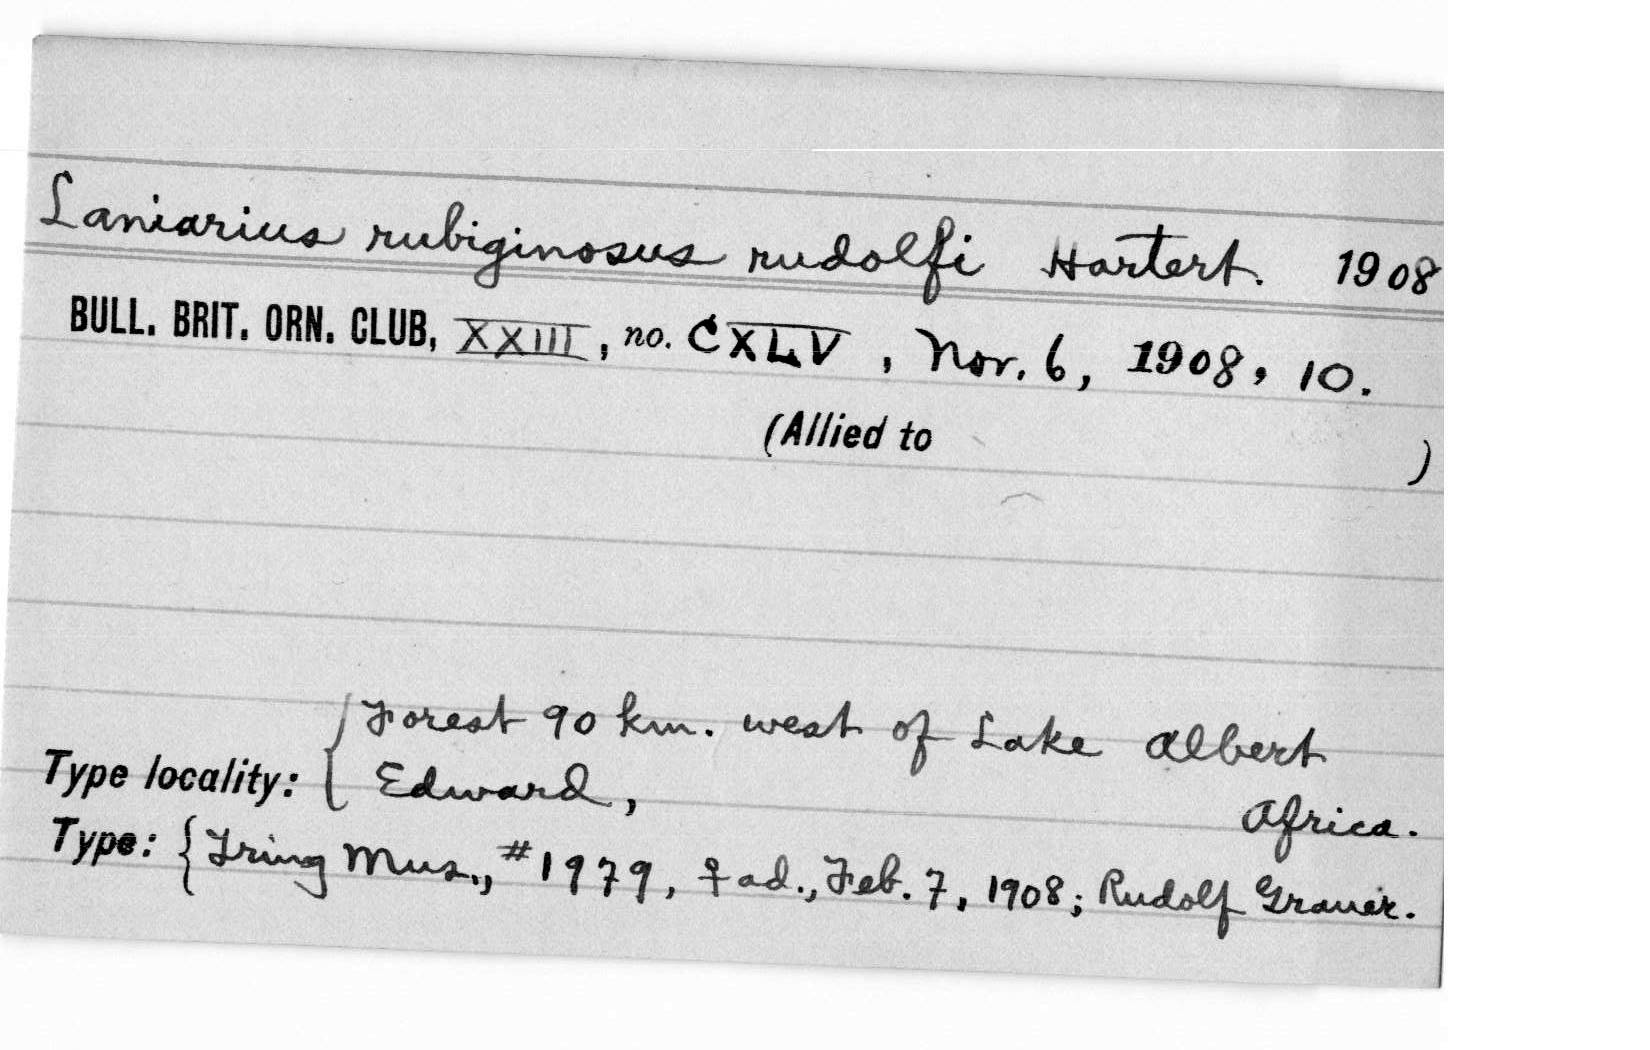 Laniarius rubiginosus rudolfi Hartert. 1908
BULL. BRIT. ORN. CLUB, XXIII, no. CXLV, Nov. 6, 1908, 10.
(Allied to )
Type locality: { Forest 90 km. west of Lake Albert
Edward, Africa.
Type: { Tring Mus., #1979, ♀ ad., Feb. 7, 1908; Rudolf Grauer.